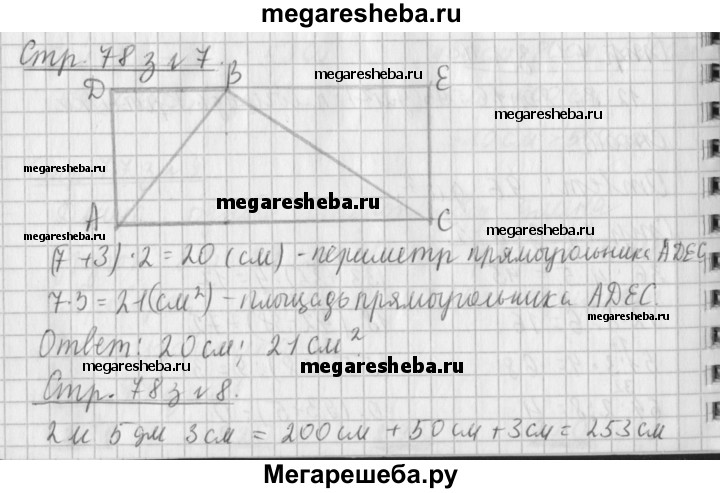 megaresheba.ru
Стр. 78 з № 7.
D B E
megaresheba.ru
megaresheba.ru
megaresheba.ru
megaresheba.ru
A C
megaresheba.ru
(7 + 3) · 2 = 20 (см) - периметр прямоугольника ADEC
7 · 3 = 21 (см²) - площадь прямоугольника ADEC.
megaresheba.ru
Ответ: 20 см; 21 см².
megaresheba.ru
megaresheba.ru
Стр. 78 з № 8.
2 м 5 дм 3 см = 200 см + 50 см + 3 см = 253 см
Мегарешеба.ру